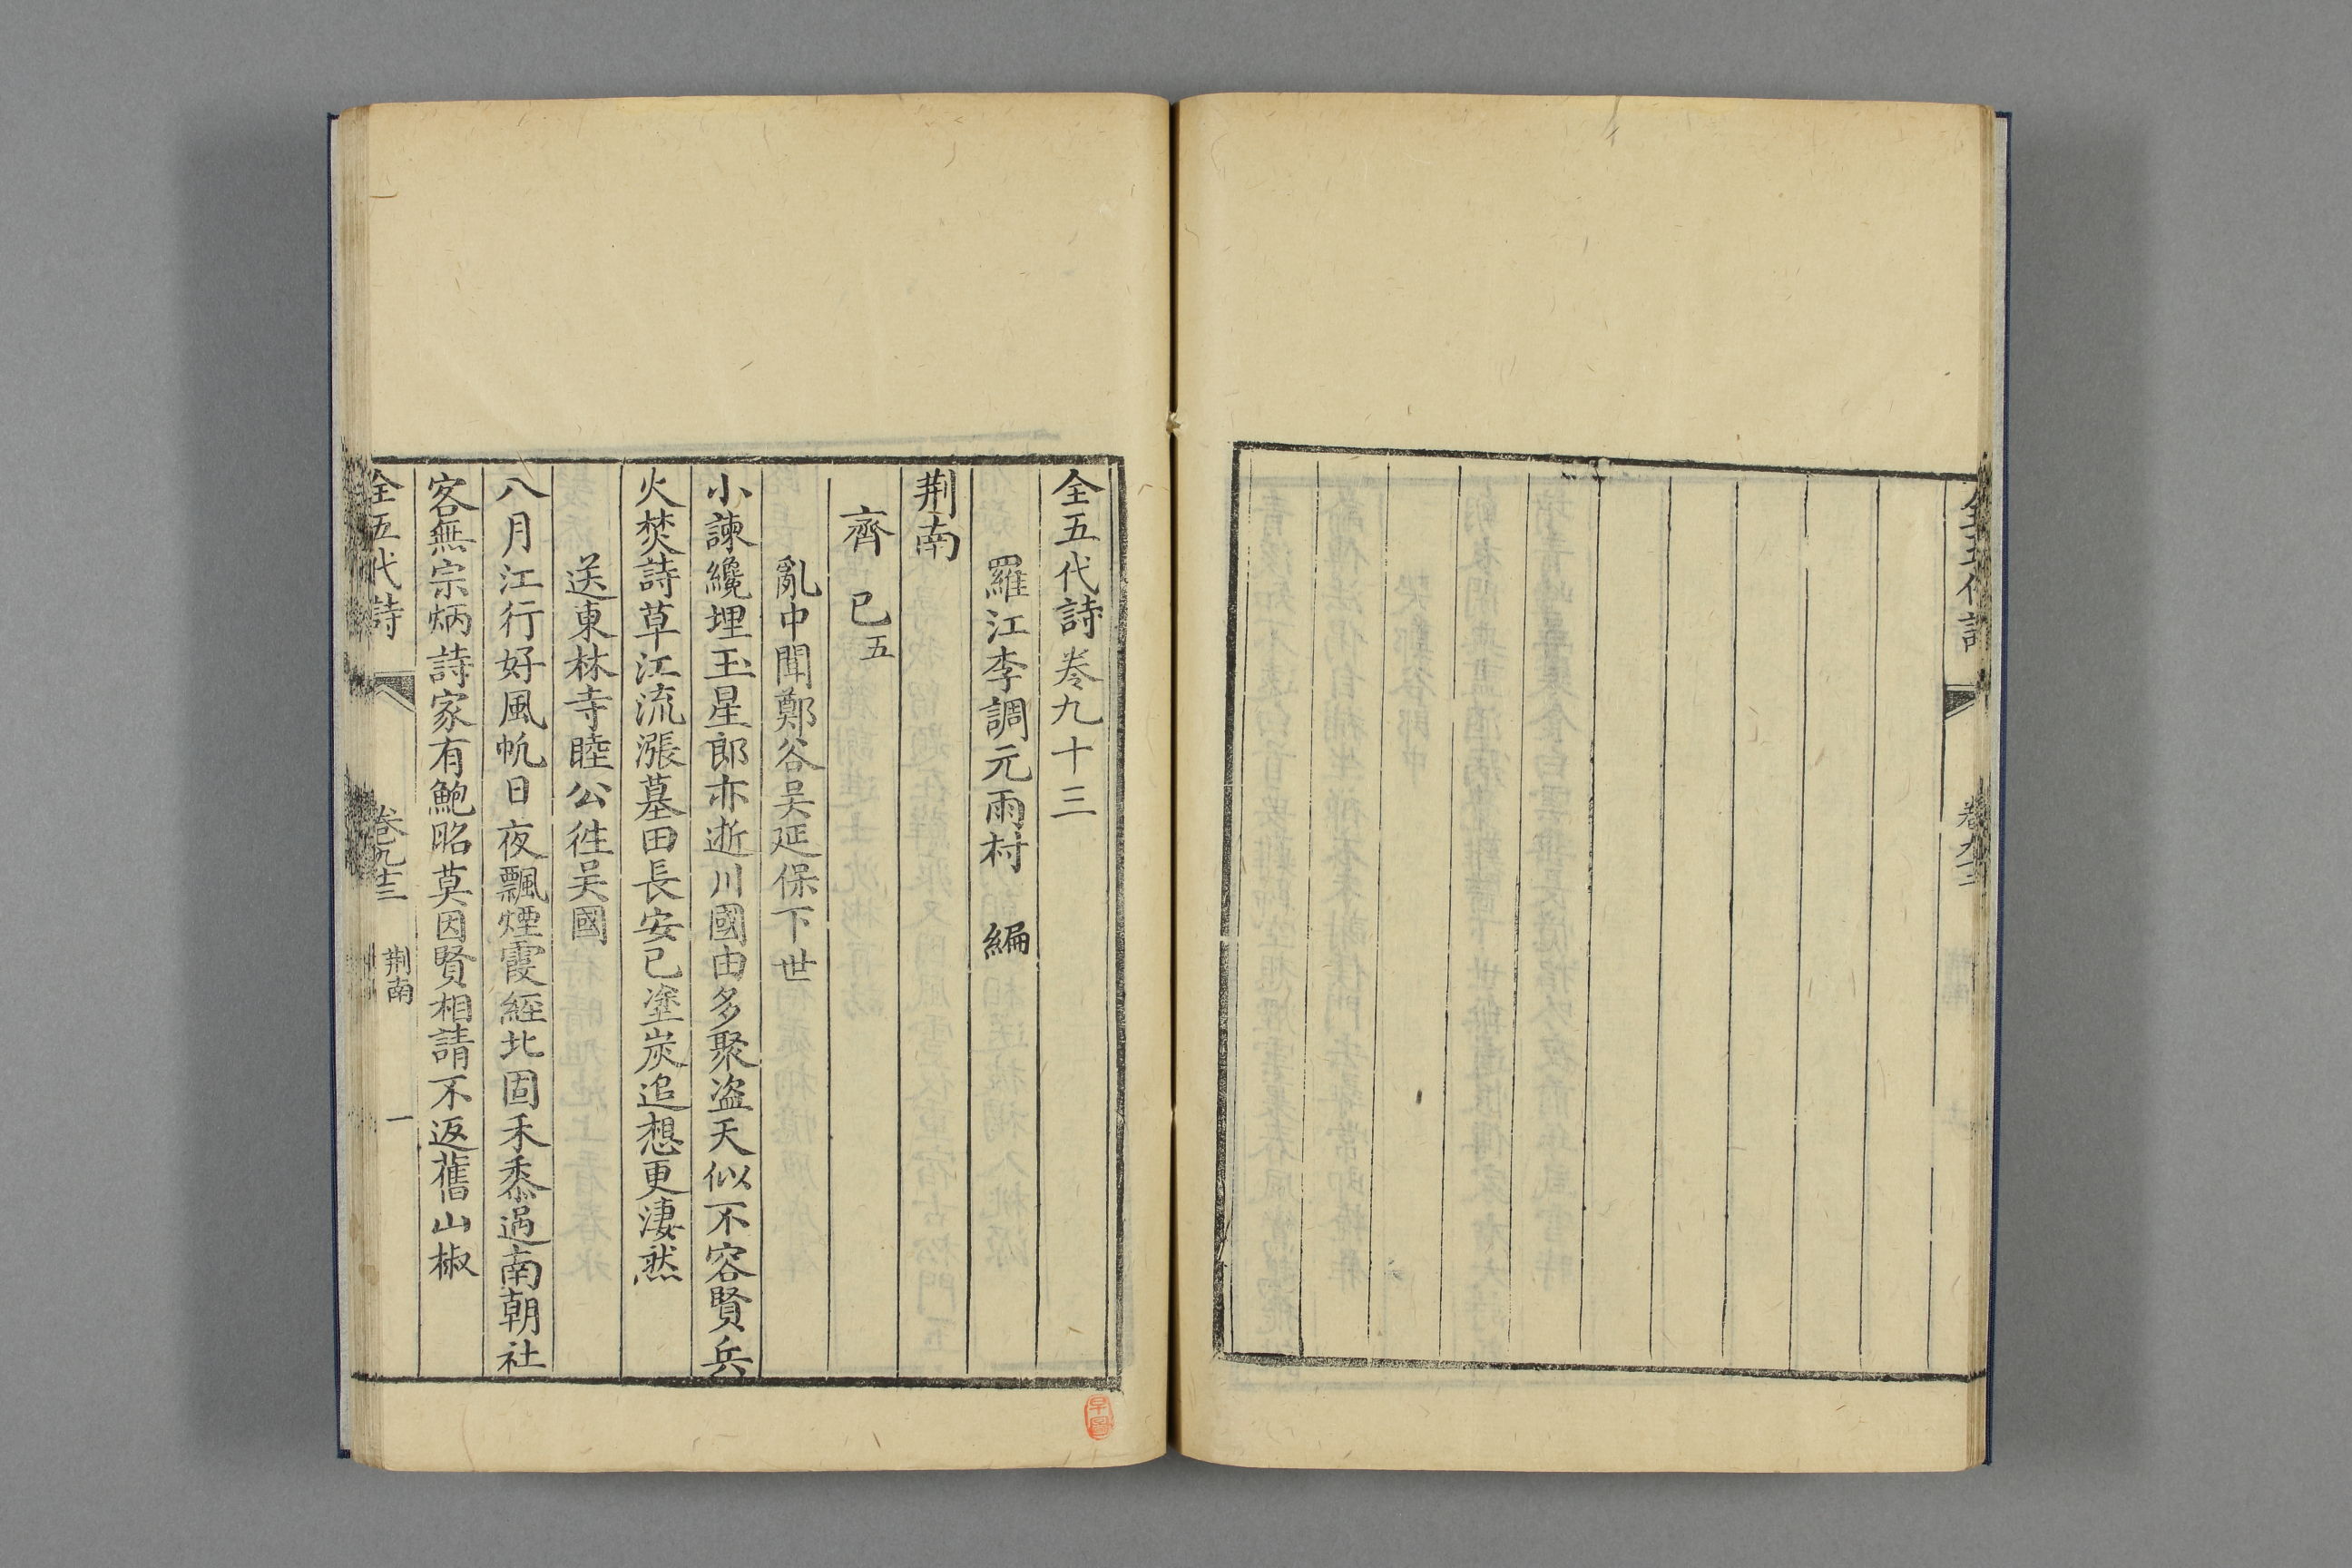 全五代詩卷九十三
羅江李調元雨村 編
荆南
齊己五
亂中聞鄭谷吴延保下世
小諫纔埋玉星郎亦逝川國由多聚盗天似不容賢兵
火焚詩草江流漲墓田長安已塗炭追想更淒然
送東林寺睦公徃吴國
八月江行好風帆日夜飄煙霞經北固禾黍過南朝社
客無宗炳詩家有鮑昭莫因賢相請不返舊山椒
全五代詩 卷九十三 荆南 一